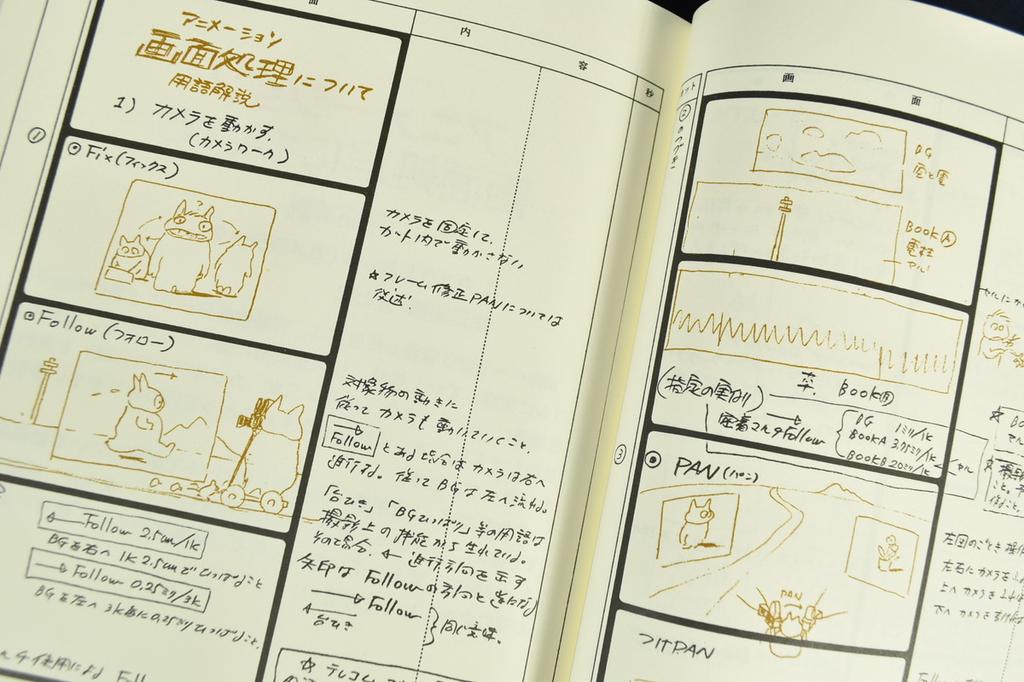 面
内
容
秒
アニメーション
画面処理について
用語解説
1) カメラを動かす。
(カメラワーク)
①
Fix(フィックス)
カメラを固定して、
カット内で動かさない
☆フレーム修正PANについては
後述!
Follow(フォロー)
対象物の動きに
従ってカメラも動いていくこと。
Follow とある場合はカメラは右へ
進行する。従ってBGは左へ流れる。
「台ひき」「BGひっぱり」等の用語は
撮影上の
その場合、← 進行方向を示す
矢印は Followの方向と逆になる
→ Follow
← 台ひき
同じ意味。
← Follow 2.5mm/1K
BGを右へ 1K 2.5mmでひっぱること
→ Follow 0.25ミリ/3K
BGを左へ 3K毎に0.25ミリひっぱること。
カット
画
面
②のつづき
BG
空と雲
BOOK Ⓐ
電柱
セル
草。 BOOKⒷ
(指定の実例)
密着マルチFollow
BG 1ミリ/1K
BOOKA 3.75ミリ/1K
BOOKB 20ミリ/1K
③
PAN(パン)
PAN
左図のごとき
左右にカメラを
上へカメラを
下へカメラを
つけPAN